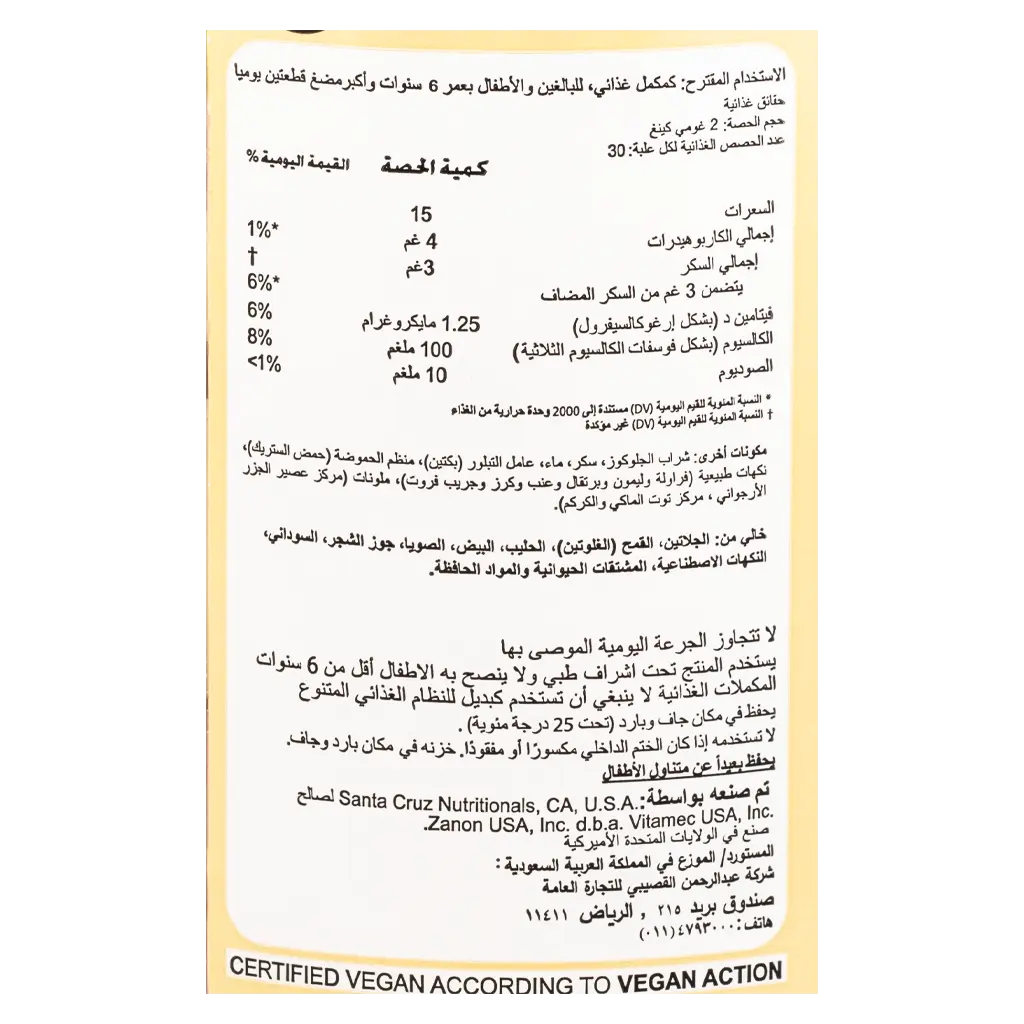 الاستخدام المقترح: كمكمل غذائي، للبالغين والأطفال بعمر 6 سنوات وأكبرمضغ قطعتين يوميا
حقائق غذائية
حجم الحصة: 2 غومي كينغ
عدد الحصص الغذائية لكل علبة: 30
كمية الحصة القيمة اليومية %
السعرات 15
إجمالي الكاربوهيدرات 4 غم 1%*
إجمالي السكر 3غم †
يتضمن 3 غم من السكر المضاف 6%*
فيتامين د (بشكل إرغوكالسيفرول) 1.25 مايكروغرام 6%
الكالسيوم (بشكل فوسفات الكالسيوم الثلاثية) 100 ملغم 8%
الصوديوم 10 ملغم <1%
* النسبة المئوية للقيم اليومية (DV) مستندة إلى 2000 وحدة حرارية من الغذاء
† النسبة المئوية للقيم اليومية (DV) غير مؤكدة
مكونات أخرى: شراب الجلوكوز، سكر، ماء، عامل التبلور (بكتين)، منظم الحموضة (حمض الستريك)،
نكهات طبيعية (فراولة وليمون وبرتقال وعنب وكرز وجريب فروت)، ملونات (مركز عصير الجزر
الأرجواني ، مركز توت الماكي والكركم).
خالي من: الجلاتين، القمح (الغلوتين)، الحليب، البيض، الصويا، جوز الشجر، السوداني،
النكهات الاصطناعية، المشتقات الحيوانية والمواد الحافظة.
لا تتجاوز الجرعة اليومية الموصى بها
يستخدم المنتج تحت اشراف طبي ولا ينصح به الاطفال أقل من 6 سنوات
المكملات الغذائية لا ينبغي أن تستخدم كبديل للنظام الغذائي المتنوع
يحفظ في مكان جاف وبارد (تحت 25 درجة مئوية) .
لا تستخدمه إذا كان الختم الداخلي مكسورًا أو مفقودًا. خزنه في مكان بارد وجاف.
يحفظ بعيداً عن متناول الأطفال
تم صنعه بواسطة: Santa Cruz Nutritionals, CA, U.S.A. لصالح
Zanon USA, Inc. d.b.a. Vitamec USA, Inc.
صنع في الولايات المتحدة الأميركية
المستورد/ الموزع في المملكة العربية السعودية :
شركة عبدالرحمن القصيبي للتجارة العامة
صندوق بريد ٢١٥ , الرياض ١١٤١١
هاتف: ٤٧٩٣٠٠٠ (٠١١)
CERTIFIED VEGAN ACCORDING TO VEGAN ACTION